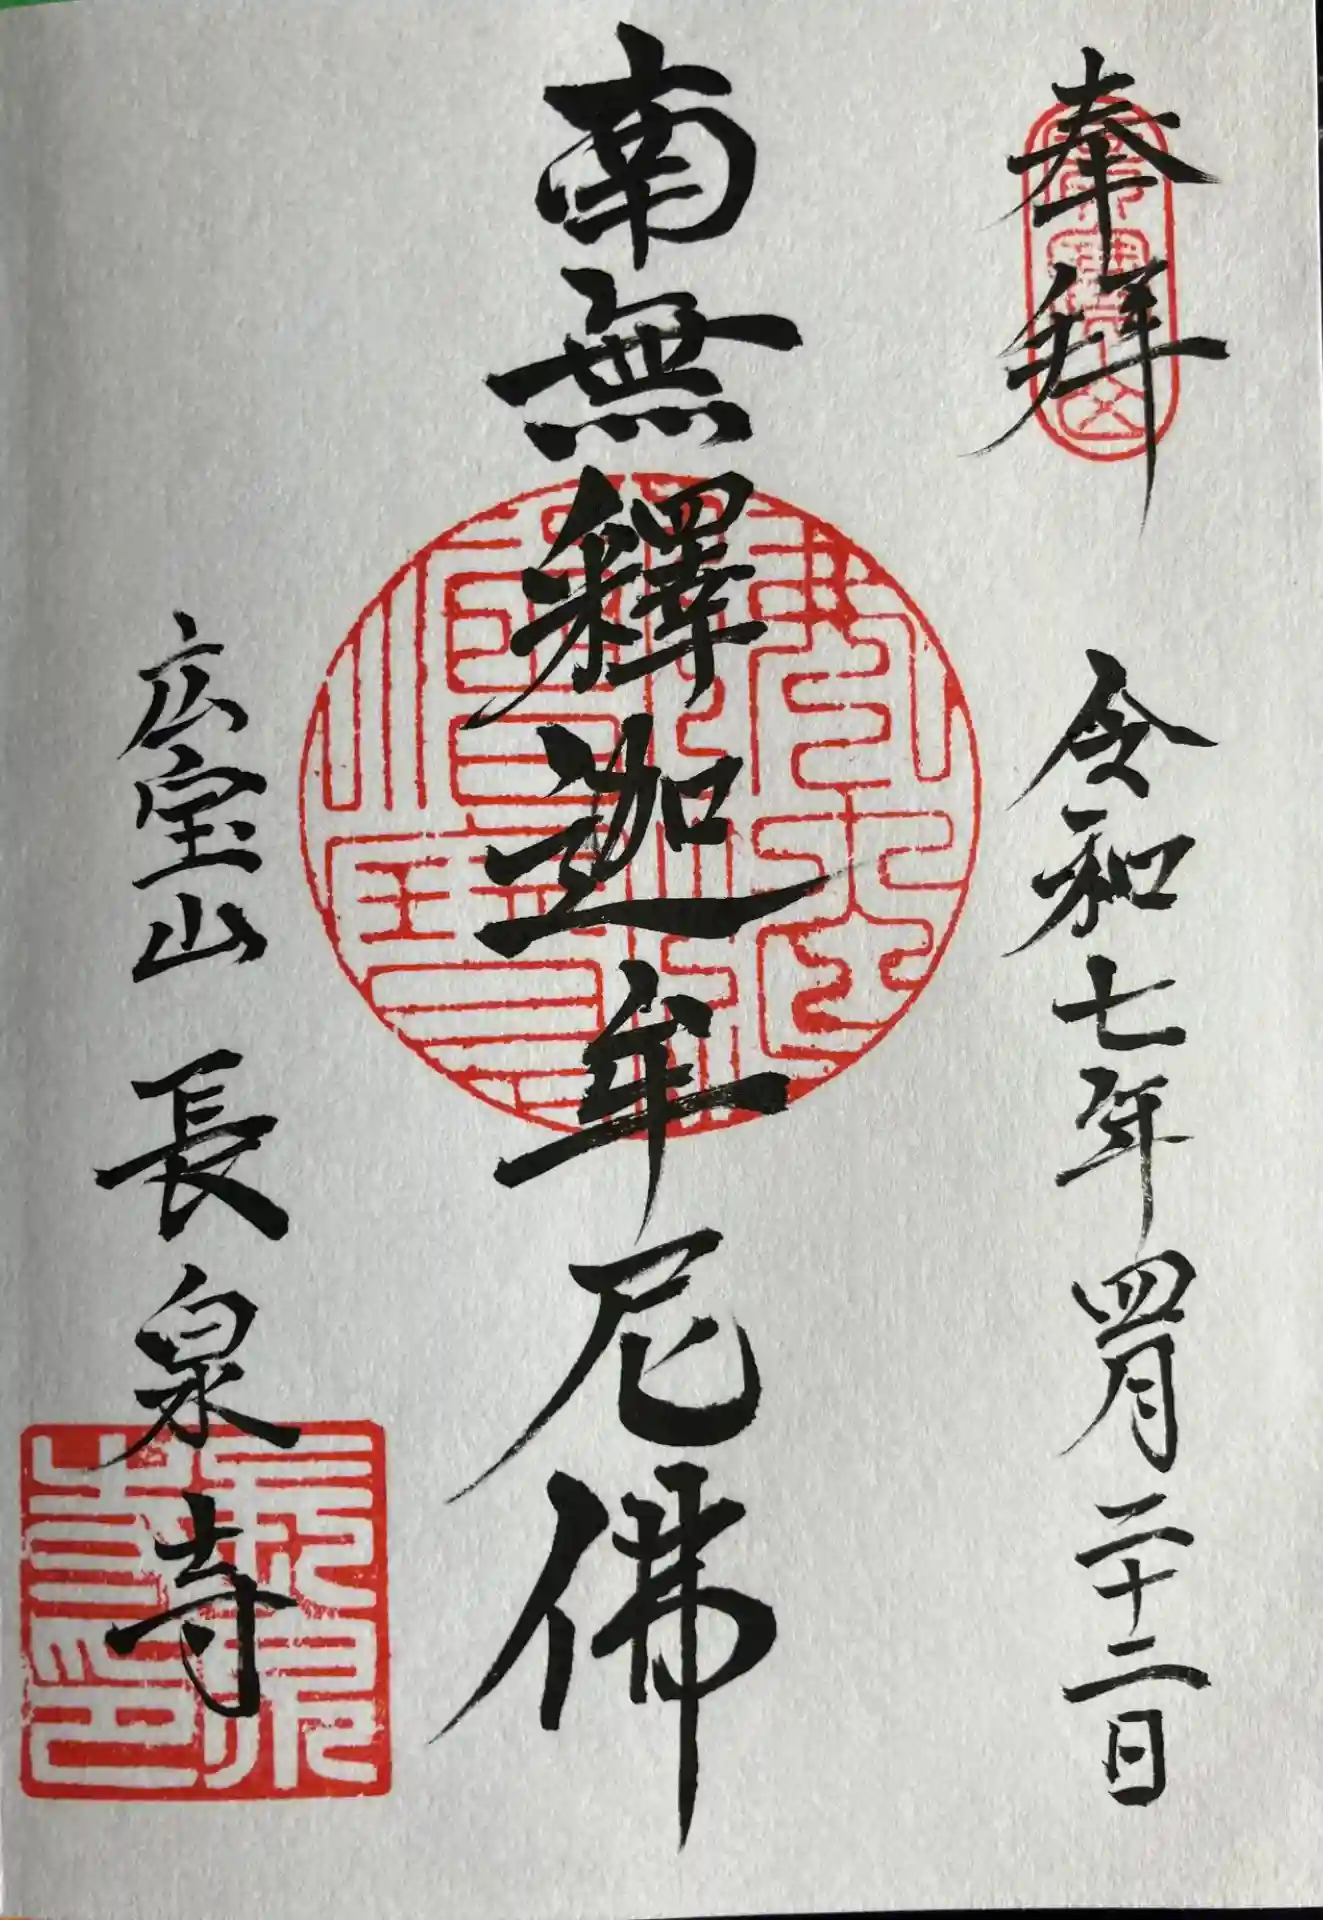 奉拜
令和七年四月二十二日
南無釋迦牟尼佛
広宝山 長泉寺
長泉寺印